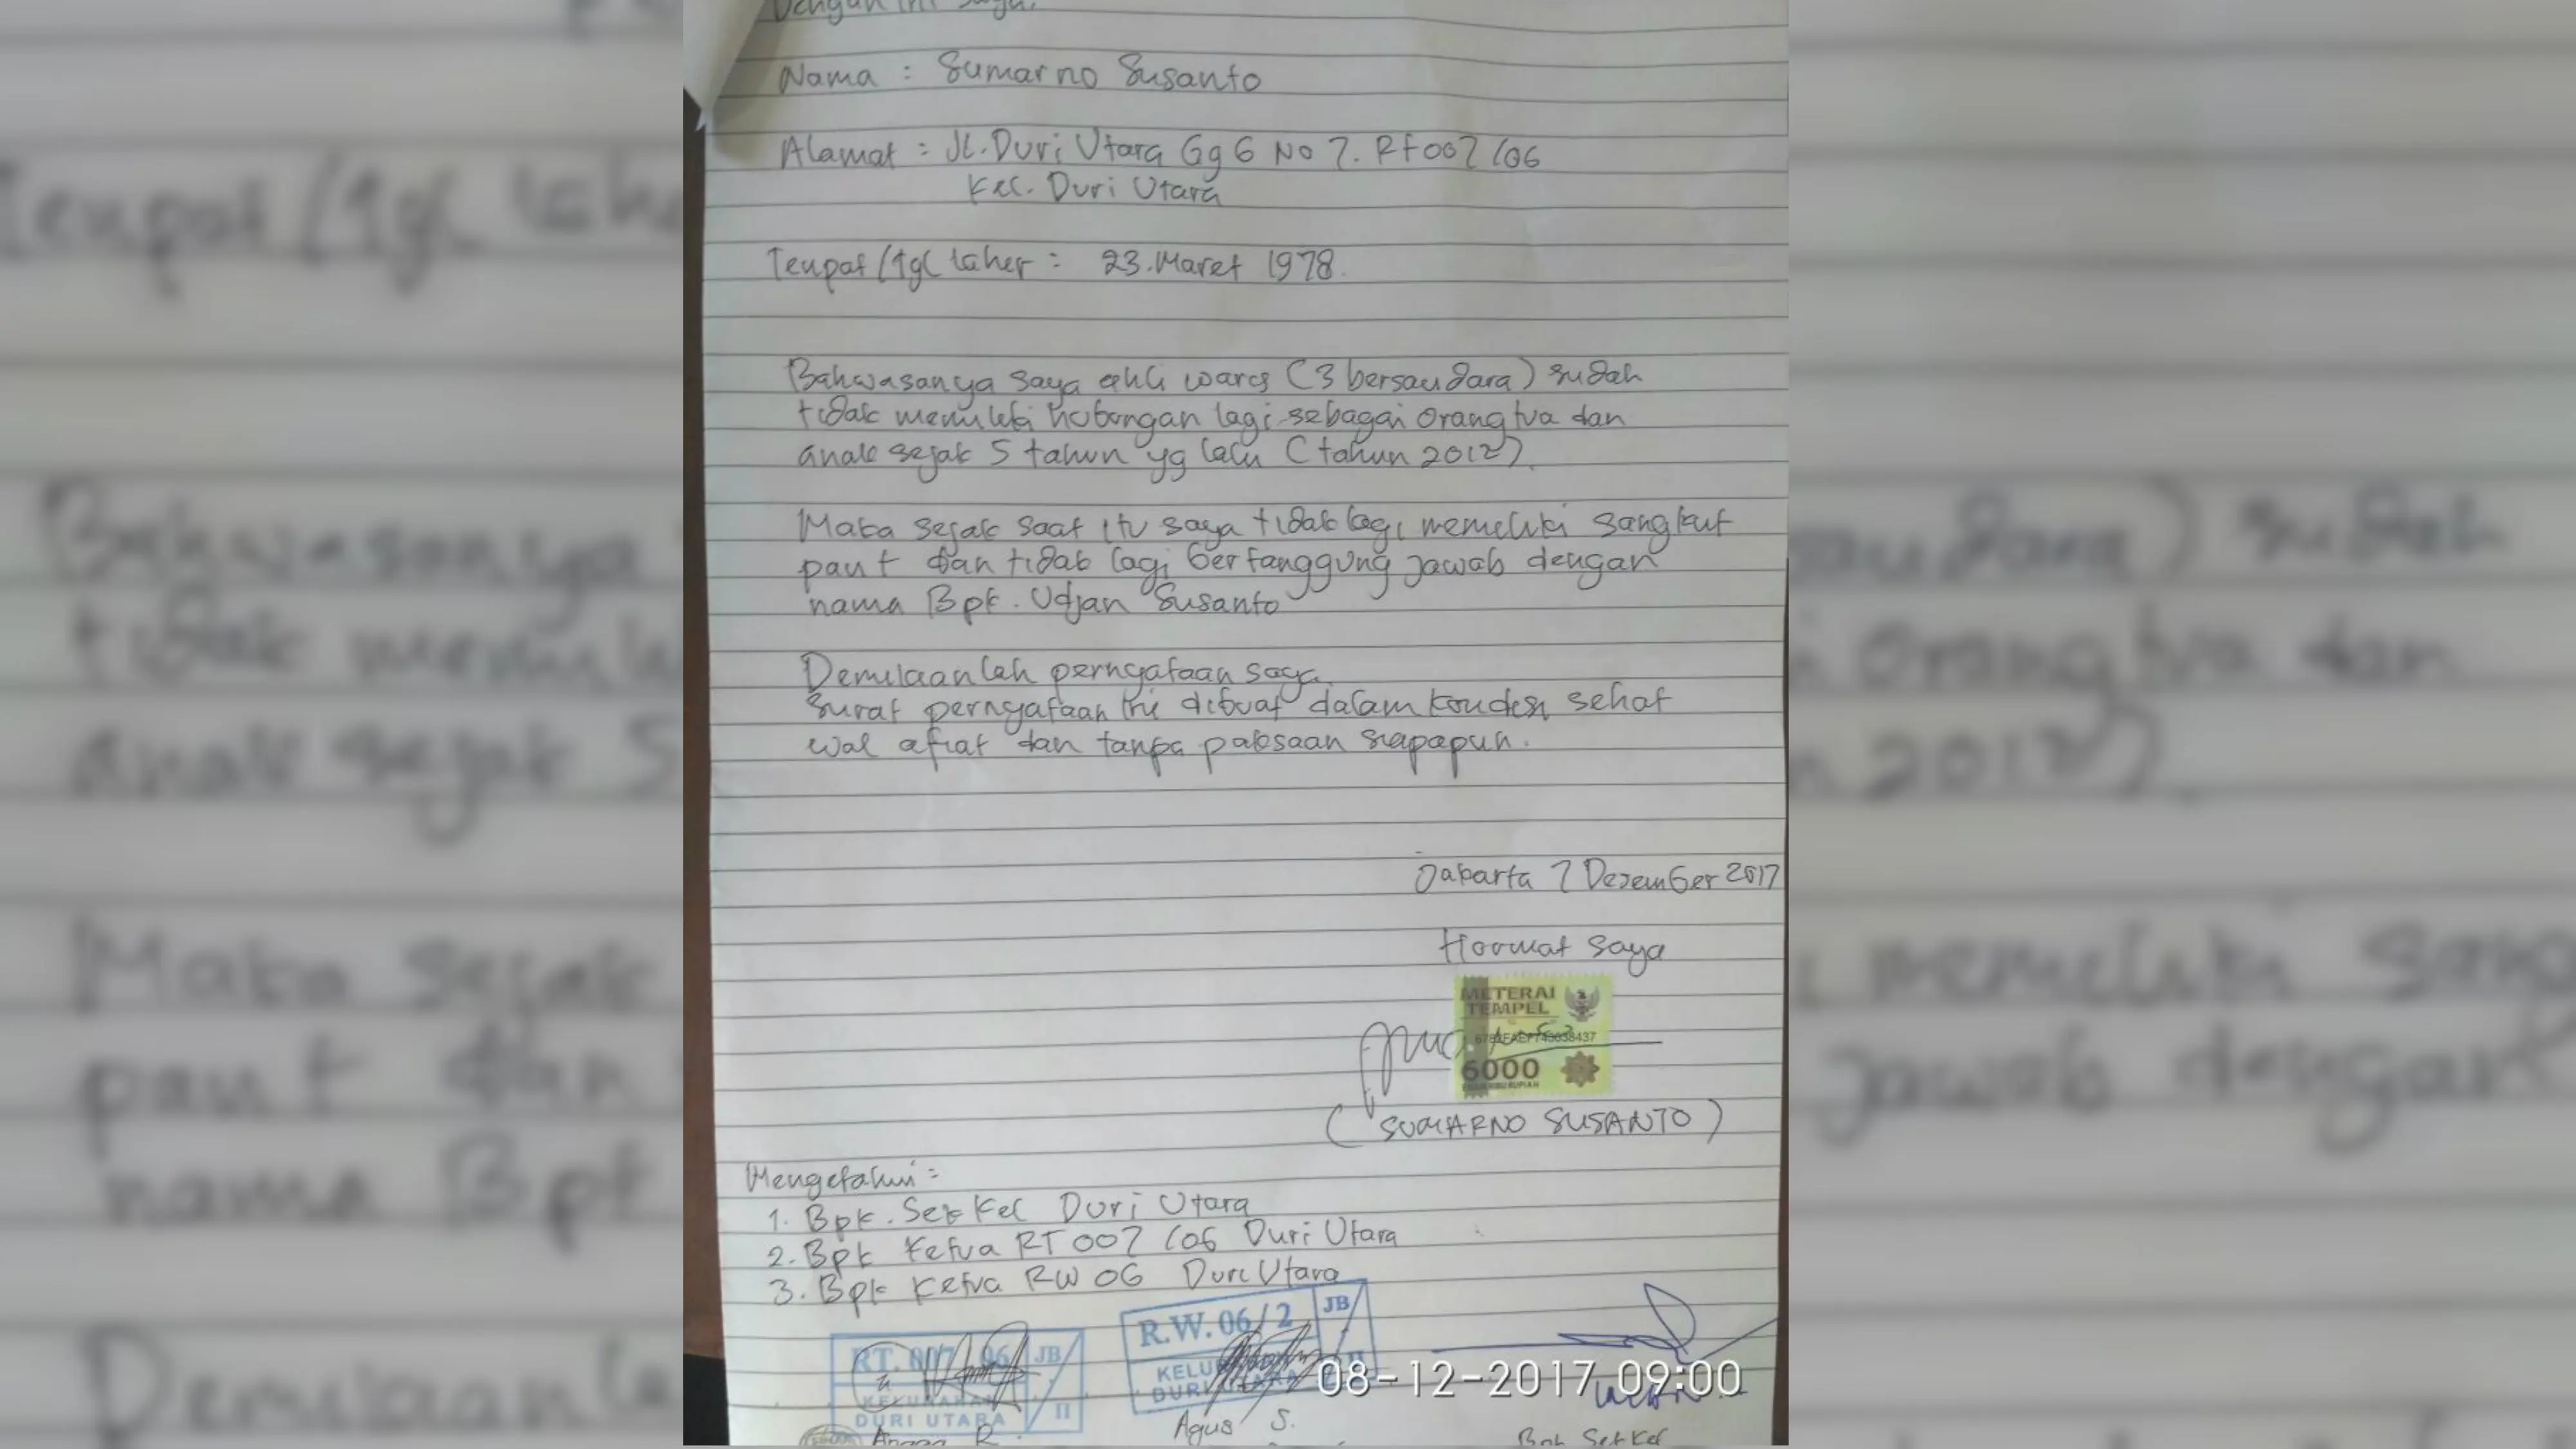 Dengan ini saya:
Nama : Sumarno Susanto
Alamat : Jl. Duri Utara Gg 6 No 7. Rt 007/06
Kel. Duri Utara
Tempat/tgl laher : 23. Maret 1978.
Bahwasanya saya ahli wares (3 bersaudara) sudah
tidak memiliki hubungan lagi sebagai orang tua dan
anak sejak 5 tahun yg lalu (tahun 2012).
Maka sejak saat itu saya tidak lagi memeliki sangkut
paut dan tidak lagi bertanggung jawab dengan
nama Bpk. Udjan Susanto
Demikianlah pernyataan saya.
Surat pernyataan ini dibuat dalam kondisi sehat
wal afiat dan tanpa paksaan siapapun.
Jakarta 7 Desember 2017
Hormat saya
METERAI
TEMPEL
6000
(SUMARNO SUSANTO)
Mengetahui :
1. Bpk. Sek Kel Duri Utara
2. Bpk Ketua RT 007/06 Duri Utara
3. Bpk Ketua RW 06 Duri Utara
R.W. 06/2 JB
RT. 007/06 JB
KELURAHAN
DURI UTARA II
KELURAHAN
DURI UTARA II
08-12-2017 09:00
Agus S.
Bpk Sek Kel